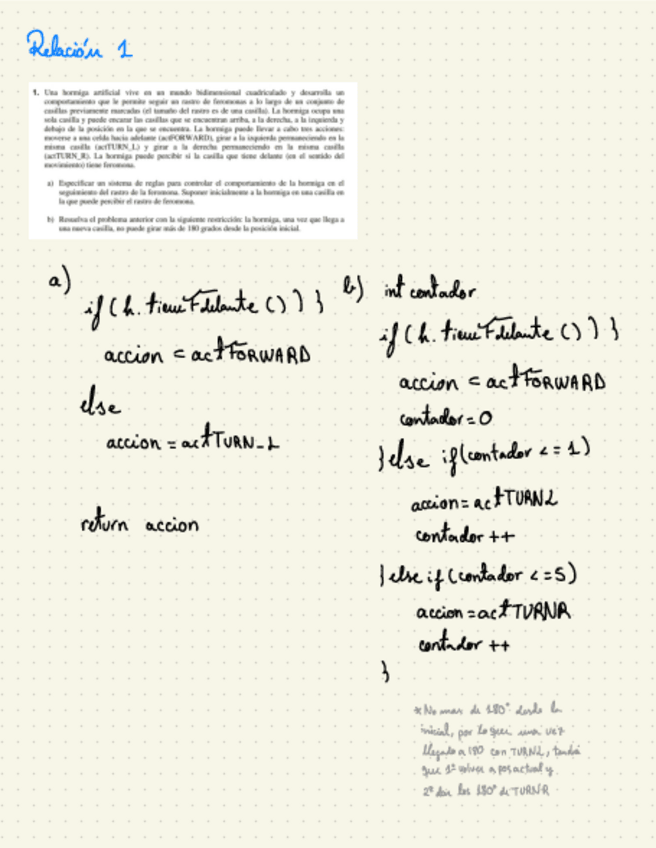 Relación 1
1. Una hormiga artificial vive en un mundo bidimensional cuadriculado y desarrolla un
comportamiento que le permite seguir un rastro de feromonas a lo largo de un conjunto de
casillas previamente marcadas (el tamaño del rastro es de una casilla). La hormiga ocupa una
sola casilla y puede encarar las casillas que se encuentran arriba, a la derecha, a la izquierda y
debajo de la posición en la que se encuentra. La hormiga puede llevar a cabo tres acciones:
moverse a una celda hacia adelante (actFORWARD), girar a la izquierda permaneciendo en la
misma casilla (actTURN_L) y girar a la derecha permaneciendo en la misma casilla
(actTURN_R). La hormiga puede percibir si la casilla que tiene delante (en el sentido del
movimiento) tiene feromona.
a) Especificar un sistema de reglas para controlar el comportamiento de la hormiga en el
seguimiento del rastro de la feromona. Suponer inicialmente a la hormiga en una casilla en
la que puede percibir el rastro de feromona.
b) Resuelva el problema anterior con la siguiente restricción: la hormiga, una vez que llega a
una nueva casilla, no puede girar más de 180 grados desde la posición inicial.
a)
if (h.tieneFdelante ( ) ) }
accion = actFORWARD
else
accion = actTURN_L
return accion
b) int contador
if (h.tieneFdelante ( ) ) }
accion = actFORWARD
contador = 0
}else if(contador <= 1)
accion = actTURNL
contador ++
}else if (contador <=5)
accion = actTURNR
contador ++
}
*No mas de 180° desde la
inicial, por lo que una vez
llegado a 180 con TURNL, tendrá
que 1º volver a pos actual y
2º dar los 180° de TURNR